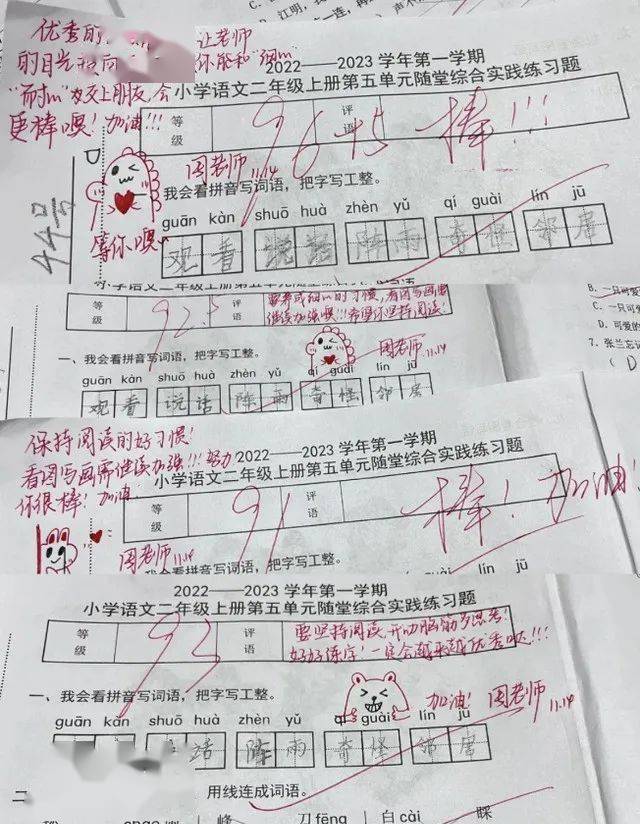 C.
D. 江明,我
优秀的 让老师
的目光
"耐心"交上朋友,会
更棒噢!加油!!!
2022——2023学年第一学期
小学语文二年级上册第五单元随堂综合实践练习题
等级 96 + 5 评语 棒!!!
周老师 11.14
44号
等你噢~
我会看拼音写词语,把字写工整。
guān kàn shuō huà zhèn yǔ qí guài lín jū
观看 说话 阵雨 奇怪 邻居
等级 92.5 评语 要养成细心的习惯,看图写画要
继续加强噢!!!希望你坚持阅读!
周老师 11.14
一、我会看拼音写词语,把字写工整。
guān kàn shuō huà zhèn yǔ qí guài lín jū
观看 说话 阵雨 奇怪 邻居
B. 一只可爱
C. 一只可
D. 可爱的
7. 张兰忘记
( D
保持阅读的好习惯!
看图写画要继续加强!!!努力
你很棒!加油
2022——2023学年第一学期
小学语文二年级上册第五单元随堂综合实践练习题
等级 91 评语 棒!加油!
周老师 11.14
我会看拼音写词语,把字写工整。
lín jū
2022——2023学年第一学期
小学语文二年级上册第五单元随堂综合实践练习题
等级 93 评语 要坚持阅读,开动脑筋多思考!
好好练字!一定会越来越优秀哒!!!
加油!周老师 11.14
一、我会看拼音写词语,把字写工整。
guān kàn shuō huà zhèn yǔ qí guài lín jū
话 阵雨 奇怪 邻居
二 用线连成词语。
峰 刀 fēng 白 cài 睬